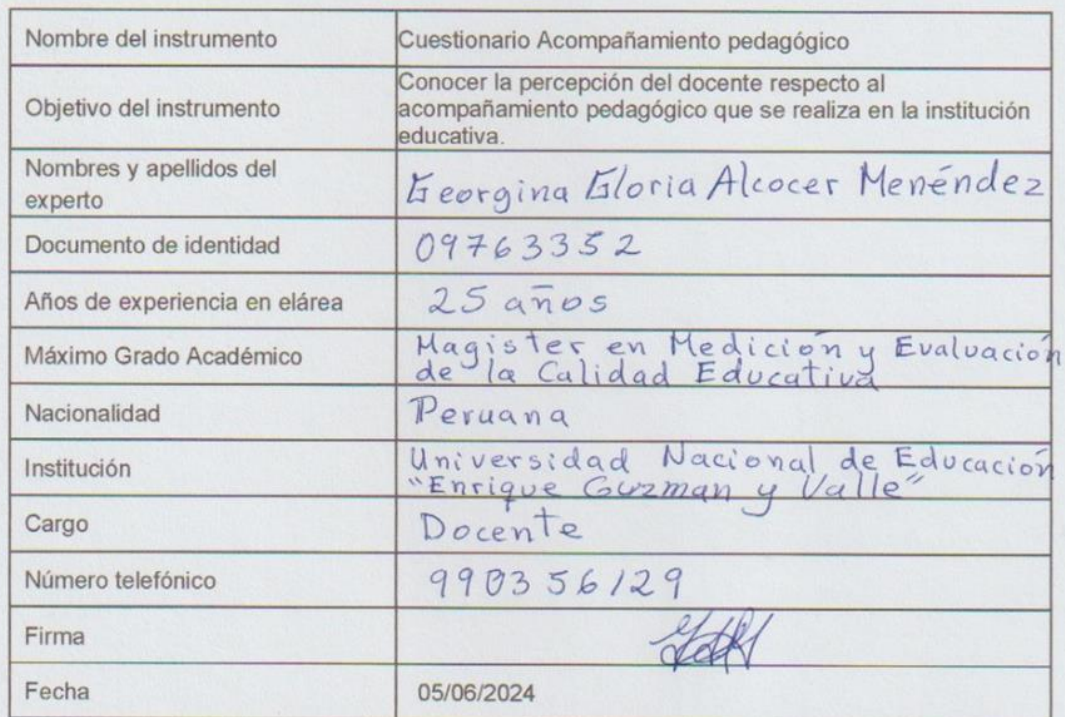 Nombre del instrumento
Cuestionario Acompañamiento pedagógico
Objetivo del instrumento
Conocer la percepción del docente respecto al
acompañamiento pedagógico que se realiza en la institución
educativa.
Nombres y apellidos del
experto
Georgina Gloria Alcocer Menéndez
Documento de identidad
09763352
Años de experiencia en elárea
25 años
Máximo Grado Académico
Magister en Medición y Evaluación
de la Calidad Educativa
Nacionalidad
Peruana
Institución
Universidad Nacional de Educación
"Enrique Guzman y Valle"
Cargo
Docente
Número telefónico
990356129
Firma
Fecha
05/06/2024